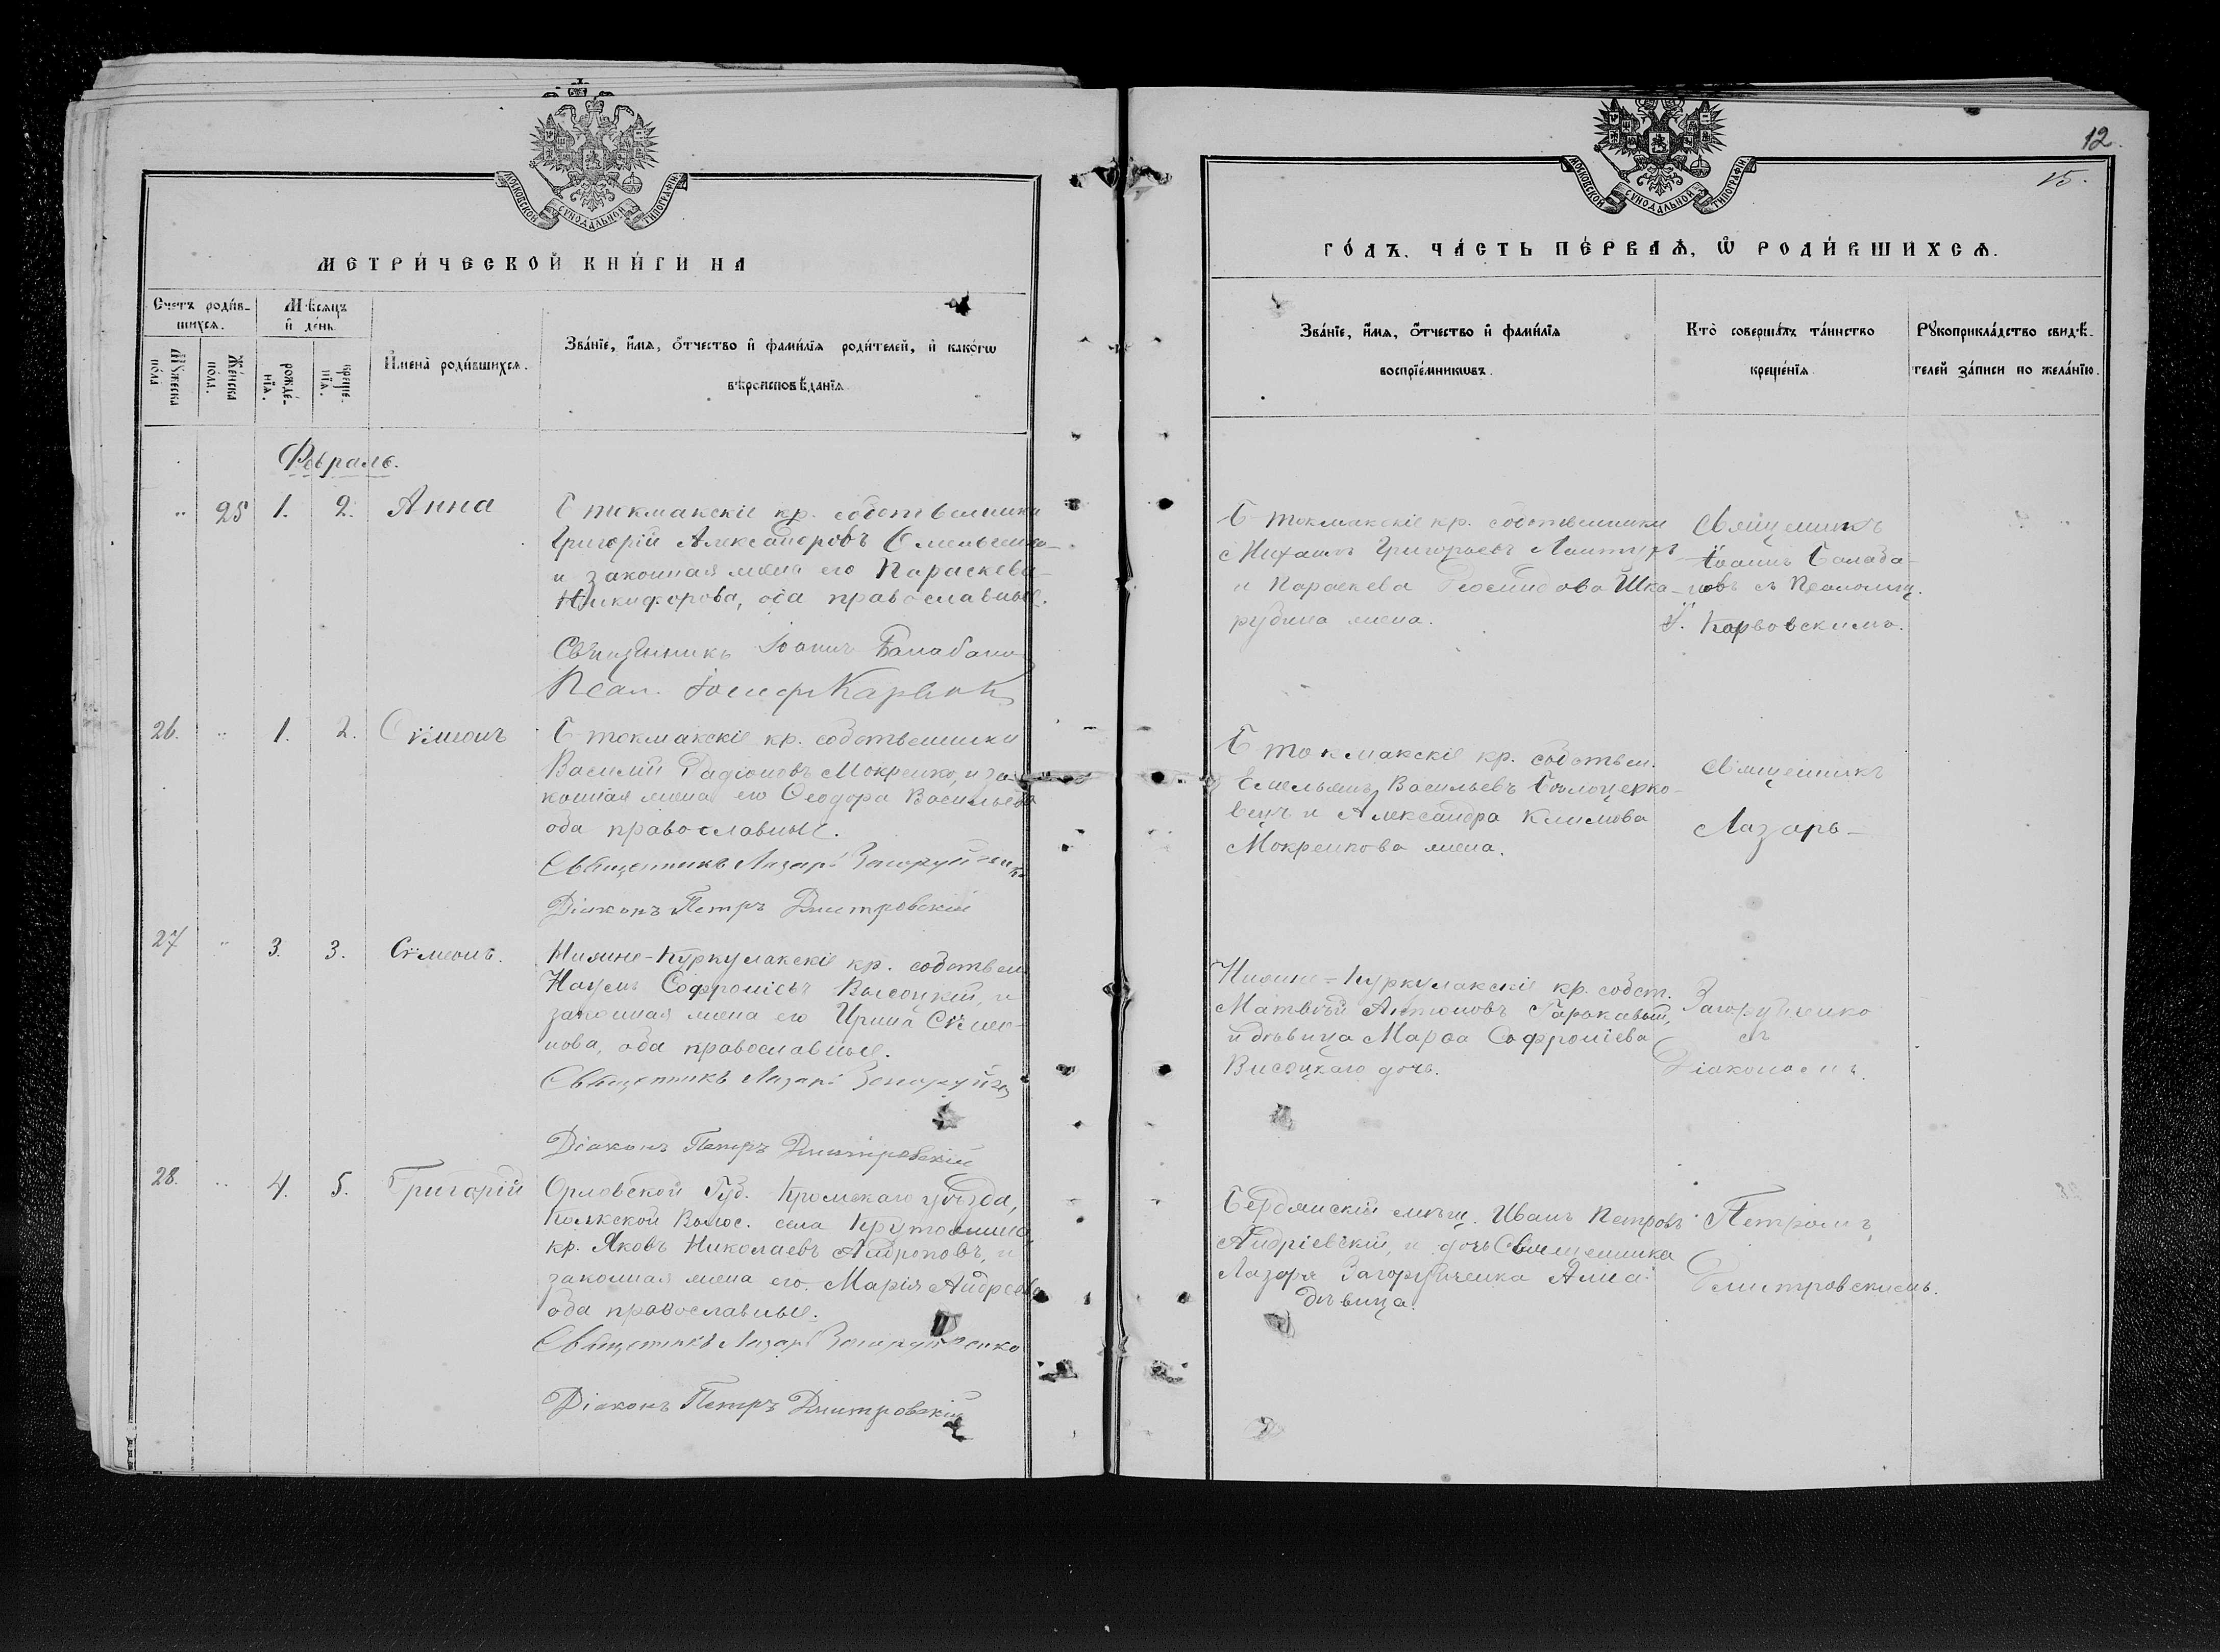 МОСКОВСКОЙ СѴНОДАЛЬНОЙ ТИПОГРАФІИ
МЕТРИ́ЧЕСКОЙ КНИ́ГИ НА
Счетъ роди́в-
шихсѧ.
Мѣсѧцъ
и҆ де́нь.
Мꙋ́жеска
по́ла
Же́нска
по́ла.
рожде́-
нїѧ.
креще́-
нїѧ.
И҆мена̀ роди́вшихсѧ.
Зва́нїе, и҆́мѧ, ѻ҆́тчество и҆ фами́лїѧ роди́телей, и҆ како́гѡ
вѣроисповѣ́данїѧ
Февраль.
" 25 1. 2. Анна
Б токмакскіе кр. собственники
Григорій Александровъ Омельченко
и законная жена его Параскева
Никифорова, оба православные.
Священникъ Іоаннъ Балабановъ
Псал. Іосифъ
26. " 1. 2. Сѵмеонъ
Б токмакскіе кр. собственники
Василій Радіоновъ Мокренко, и за-
конная жена его Ѳеодора Васильева
оба православные.
Священникъ Лазарь Загоруйченко
Діаконъ Петръ Дмитровскій
27 " 3. 3. Сѵмеонъ.
Нижне-Куркулакскіе кр. собствен.
Наумъ Софроніевъ Высоцкій, и
законная жена его Ирина Сѵмео-
нова, оба православные.
Священникъ Лазарь
Діаконъ Петръ Дмитровскій
28. " 4. 5. Григорій
Орловской Губ. Кромскаго уѣзда,
Волос. села
кр. Яковъ Николаевъ Андроповъ, и
законная жена его Марія Андреева
оба православные.
Священникъ Лазарь Загоруйченко
Діаконъ Петръ Дмитровскій
12.
15.
МОСКОВСКОЙ СѴНОДАЛЬНОЙ ТИПОГРАФІИ
ГО́ДЪ. ЧА́СТЬ ПЕ́РВАѦ, Ѡ҆ РОДИ́ВШИХСѦ.
Зва́нїе, и҆́мѧ, ѻ҆́тчество и҆ фами́лїѧ
воспрїе́мникѡвъ.
Кто̀ соверша́лъ та́инство
креще́нїѧ
Рꙋкоприкла́дство свидѣ́-
телей за́писи по жела́нїю.
Б токмакскіе кр. собственники
Михаилъ Григорьевъ
и Параскева Шка-
рубина жена.
Священникъ
Іоаннъ Балаба-
новъ съ Псаломщ.
І. Карвовскимъ.
Б токмакскіе кр. собствен.
Емельянъ Васильевъ Бѣлоцерко-
вецъ и Александра Климова
Мокренкова жена.
Священникъ
Лазарь
Нижне-Куркулакскіе кр. собст.
Матвѣй Антоновъ Гаркавый,
и дѣвица Марѳа Софроніева
Висоцкаго дочь.
Загоруйченко
съ
Діакономъ
Бердянскій мѣщ. Иванъ Петровъ
Андріевскій, и дочь Священника
Лазаря Загоруйченка Анна
дѣвица.
Петромъ
Дмитровскимъ.